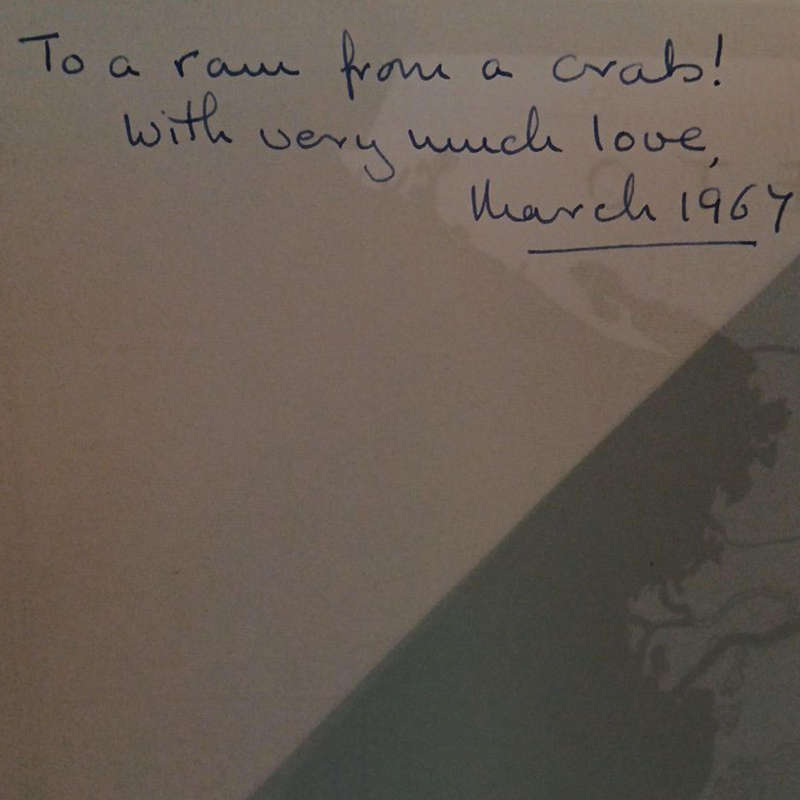 To a ram from a crab!
With very much love,
March 1967